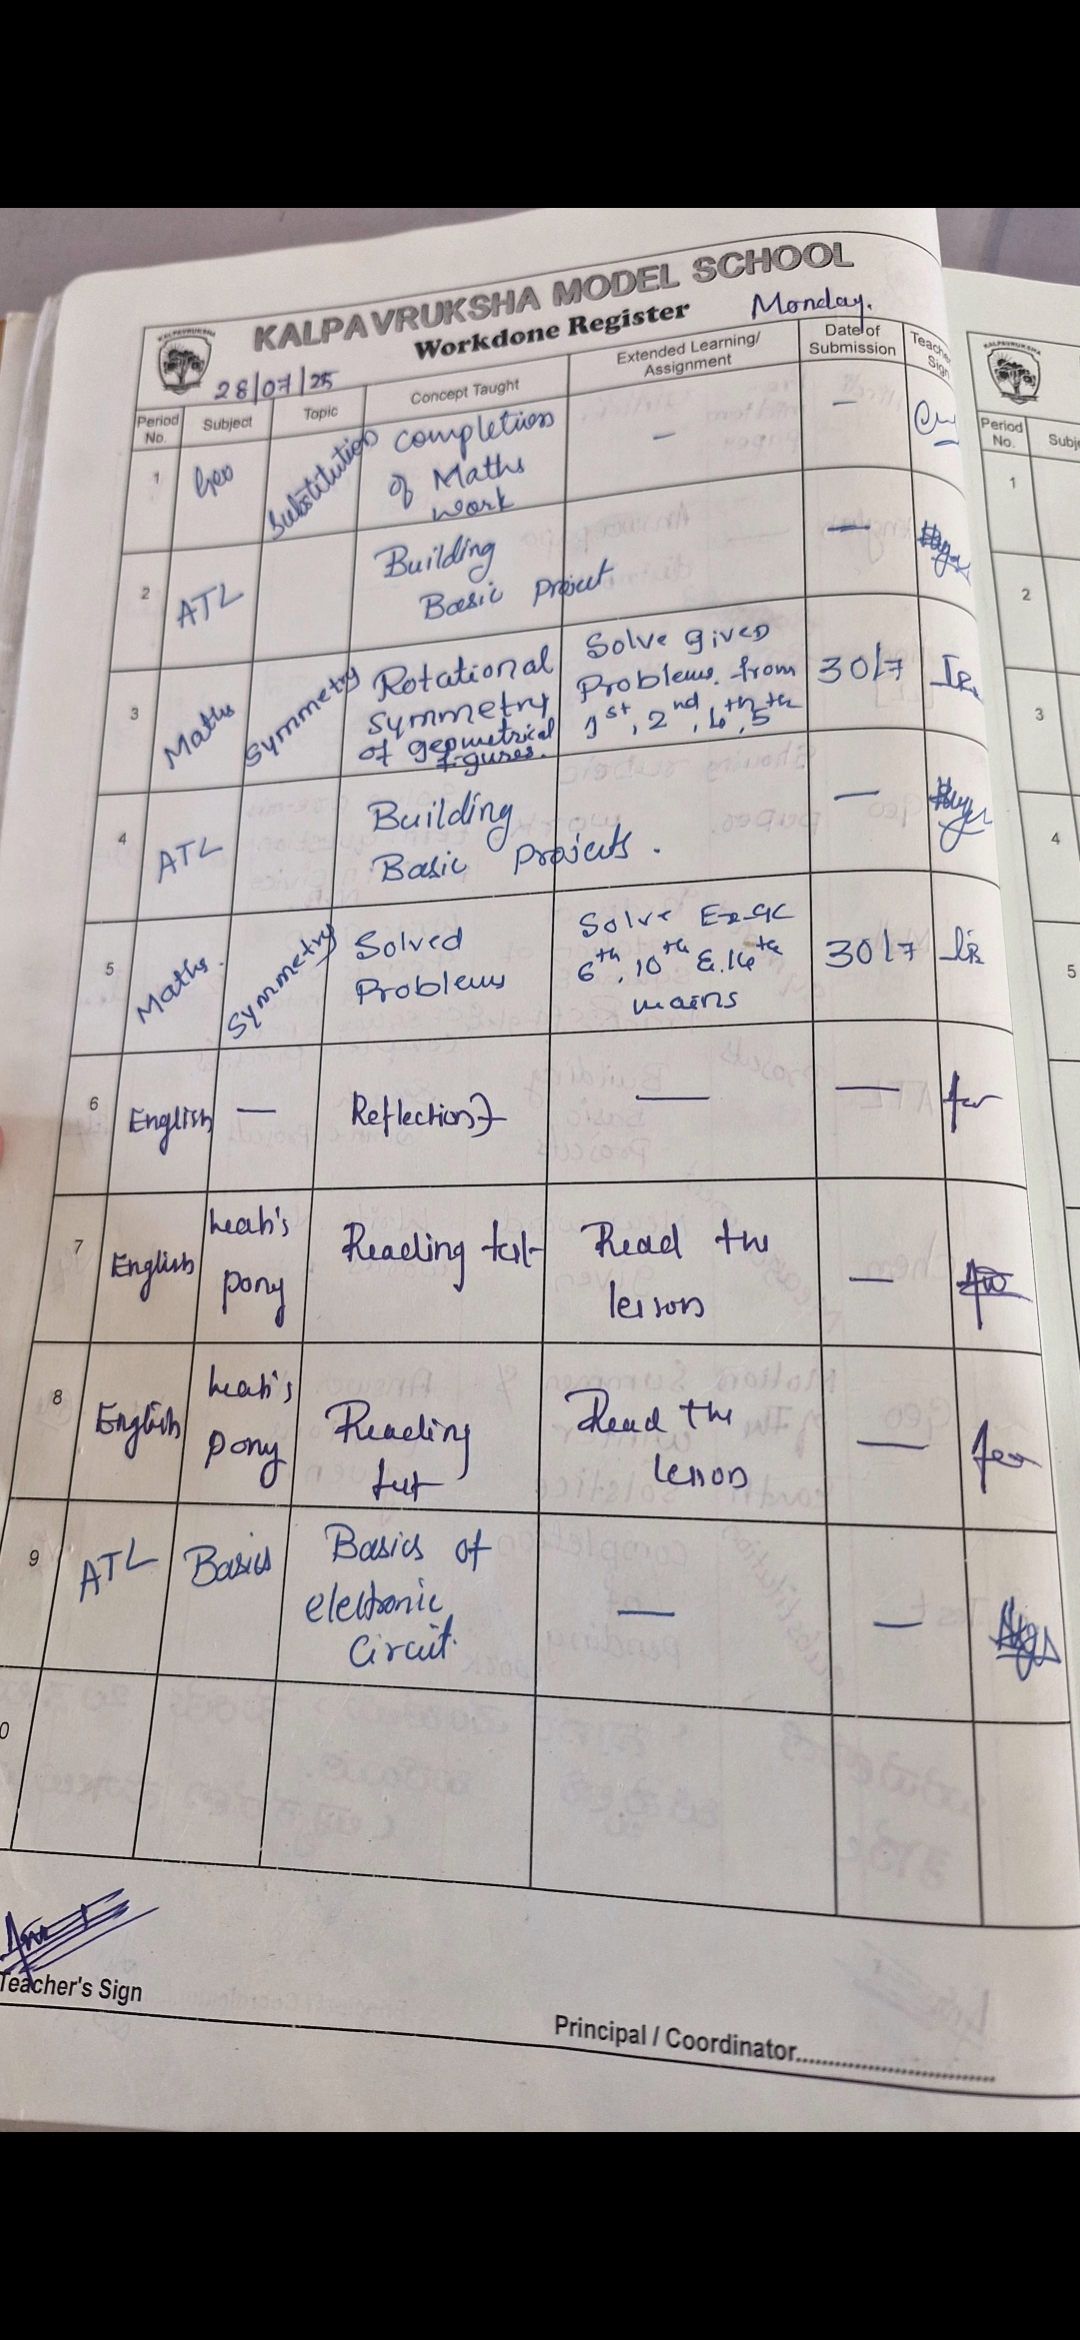 KALPAVRUKSHA MODEL SCHOOL
Workdone Register
Monday.
28/07/25
Period No.
Subject
Topic
Concept Taught
Extended Learning/
Assignment
Date of
Submission
Teach
Sign
1
Geo
Substitution
Completion
of Maths
work
—
—
2
ATL
Building
Basic Project
—
3
Maths
Symmetry
Rotational
symmetry
of geometrical
figures.
Solve given
Problems from
1st, 2nd,
30/7
4
ATL
Building
Basic Projects.
—
5
Maths.
Symmetry
Solved
Problems
Solve
6th, 10th &
mains
30/7
6
English
—
Reflection
—
—
7
English
Leah's
pony
Reading test
Read the
lesson
—
8
English
Leah's
pony
Reading
test
Read the
lesson
—
9
ATL
Basics
Basics of
electronic
Circuit.
—
—
0
Teacher's Sign
Principal / Coordinator
KALPAVRUKSHA
Period
No.
Subj
1
2
3
4
5